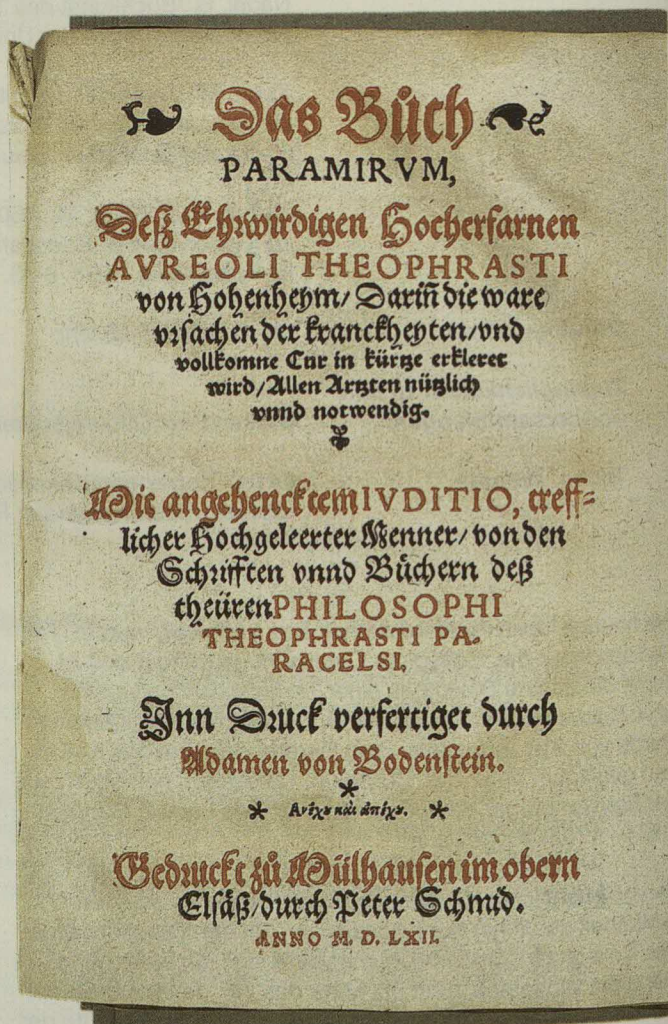 Das Bůch
PARAMIRVM,
Deſz Ehrwirdigen Hocherfarnen
AVREOLI THEOPHRASTI
von Hohenheym/ Dariñ die ware
vrſachen der kranckheyten/ vnd
vollkomne Cur in kürtze erkleret
wird/ Allen Artzten nützlich
vnnd notwendig.
Mit angehencktem IVDITIO, treff⸗
licher Hochgeleerter Menner/ von den
Schrifften vnnd Büchern deß
theüren PHILOSOPHI
THEOPHRASTI PA-
RACELSI,
Jnn Druck verfertiget durch
Adamen von Bodenſtein.
*
* Ανέχȣ καὶ ἀπέχȣ. *
Gedruckt zů Mülhauſen im obern
Elſäß/ durch Peter Schmid.
ANNO M. D. LXII.